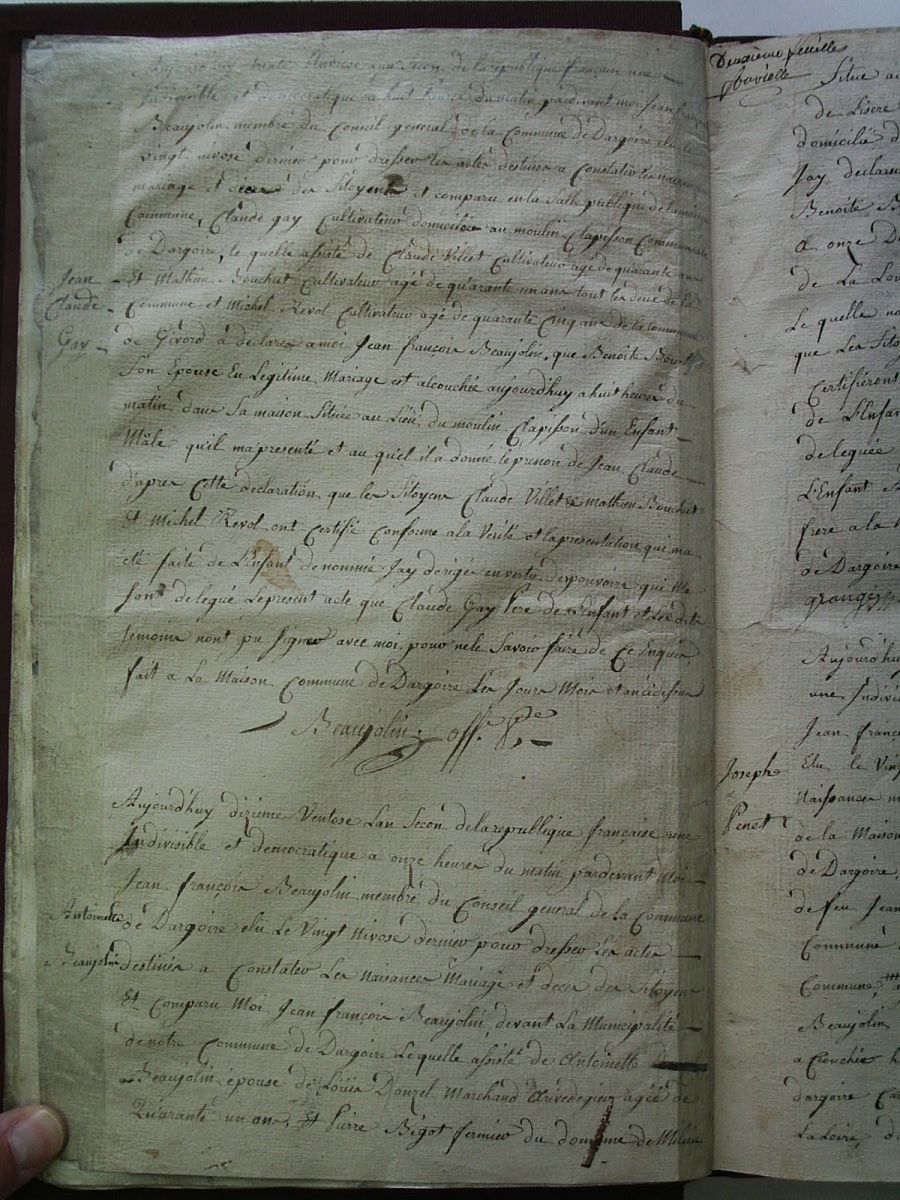 Aujourdhuy trente pluviose lan secon de la republique française une
Indivisible et democratique a huit heures du matin pardevant moi Jean françois
Beaujolin membre du Conseil general de la Commune de Dargoire elu le
vingt nivose dernier pour dresser les actes destines a Constater les naissances
mariage et déces des Sitoyens et comparu en la Salle publique de la maison
Commune, Claude gay Cultivateur domicilie au moulin Clapisson Commune
de Dargoire, le quelle assisté de Claude Villet Cultivateur agé de quarante ans
Et Mathieu Bouchut Cultivateur agé de quarante un ans tout les deux de la
Commune et Michel Revol Cultivateur agé de quarante Cinq ans de la Commune
de Givord à declarer a moi Jean françois Beaujolin, que Benoite
Son Epouse En Legitime Mariage est alcouchée aujourdhuy a huit heures du
matin dans Sa maison Située au Lieu du moulin Clapisson dun Enfant
Mâle quil ma présenté et au quel il a donné le prenon de Jean Claude
d'apres Cette declaration que les Sitoyens Claude Villet & mathieu Bouchut
Et Michel Revol ont Certifié Conforme a la Verité et la presentation qui ma
été faite de L'Enfant denommé Jay derigée en vertu des pouvoirs qui Me
Sont delegué Le present acte que Claude Gay Pere de L'Enfant et Les dits
temoins nont pu Signer avec moi pour ne le Savoir faire de Ce Enquis
fait a La Maison Commune de Dargoire Les Jours Mois et an cidessus
Beaujolin off. P.
Jean
Claude
Gay
Aujourd'huy dizieme Ventose Lan Secon de la republique française une
Indivisible et democratique a onze heures du matin pardevant Moi
Jean françois Beaujolin membre du Conseil general de la Commune
de Dargoire elü Le Vingt Nivose dernier pour dresser Les actes
destines a Constater Les naisances Mariage et déces des Sitoyens
Et Comparu Moi Jean françois Beaujolin, devant La Municipalité
de notre Commune de Dargoire Le quelle assisté de Antoinette
Beaujolin épouse de Louis Donzel Marchand a Rivedegier agée de
Quarante un ans, Et Pierre Bigot fermier du domaine de
Antoinette
Beaujolin
Deuxième feuille
Situe au
de Lisere
domicilié d
Jay declaré
Benoite B
a onze D
de La Lou
Le quelle no
que Les Sito
Certifieront
de L'Enfant
deleguée
L'Enfant
frere a la
de Dargoire
granger
Joseph
Penet
Aujourd'huy
une Indivi
Jean franço
Elu Le Vin
Naissances m
de la Maison
de Dargoire
de feu Jean
Commune
Commune
Beaujolin
a Couchée
dargoire
La Loire, d